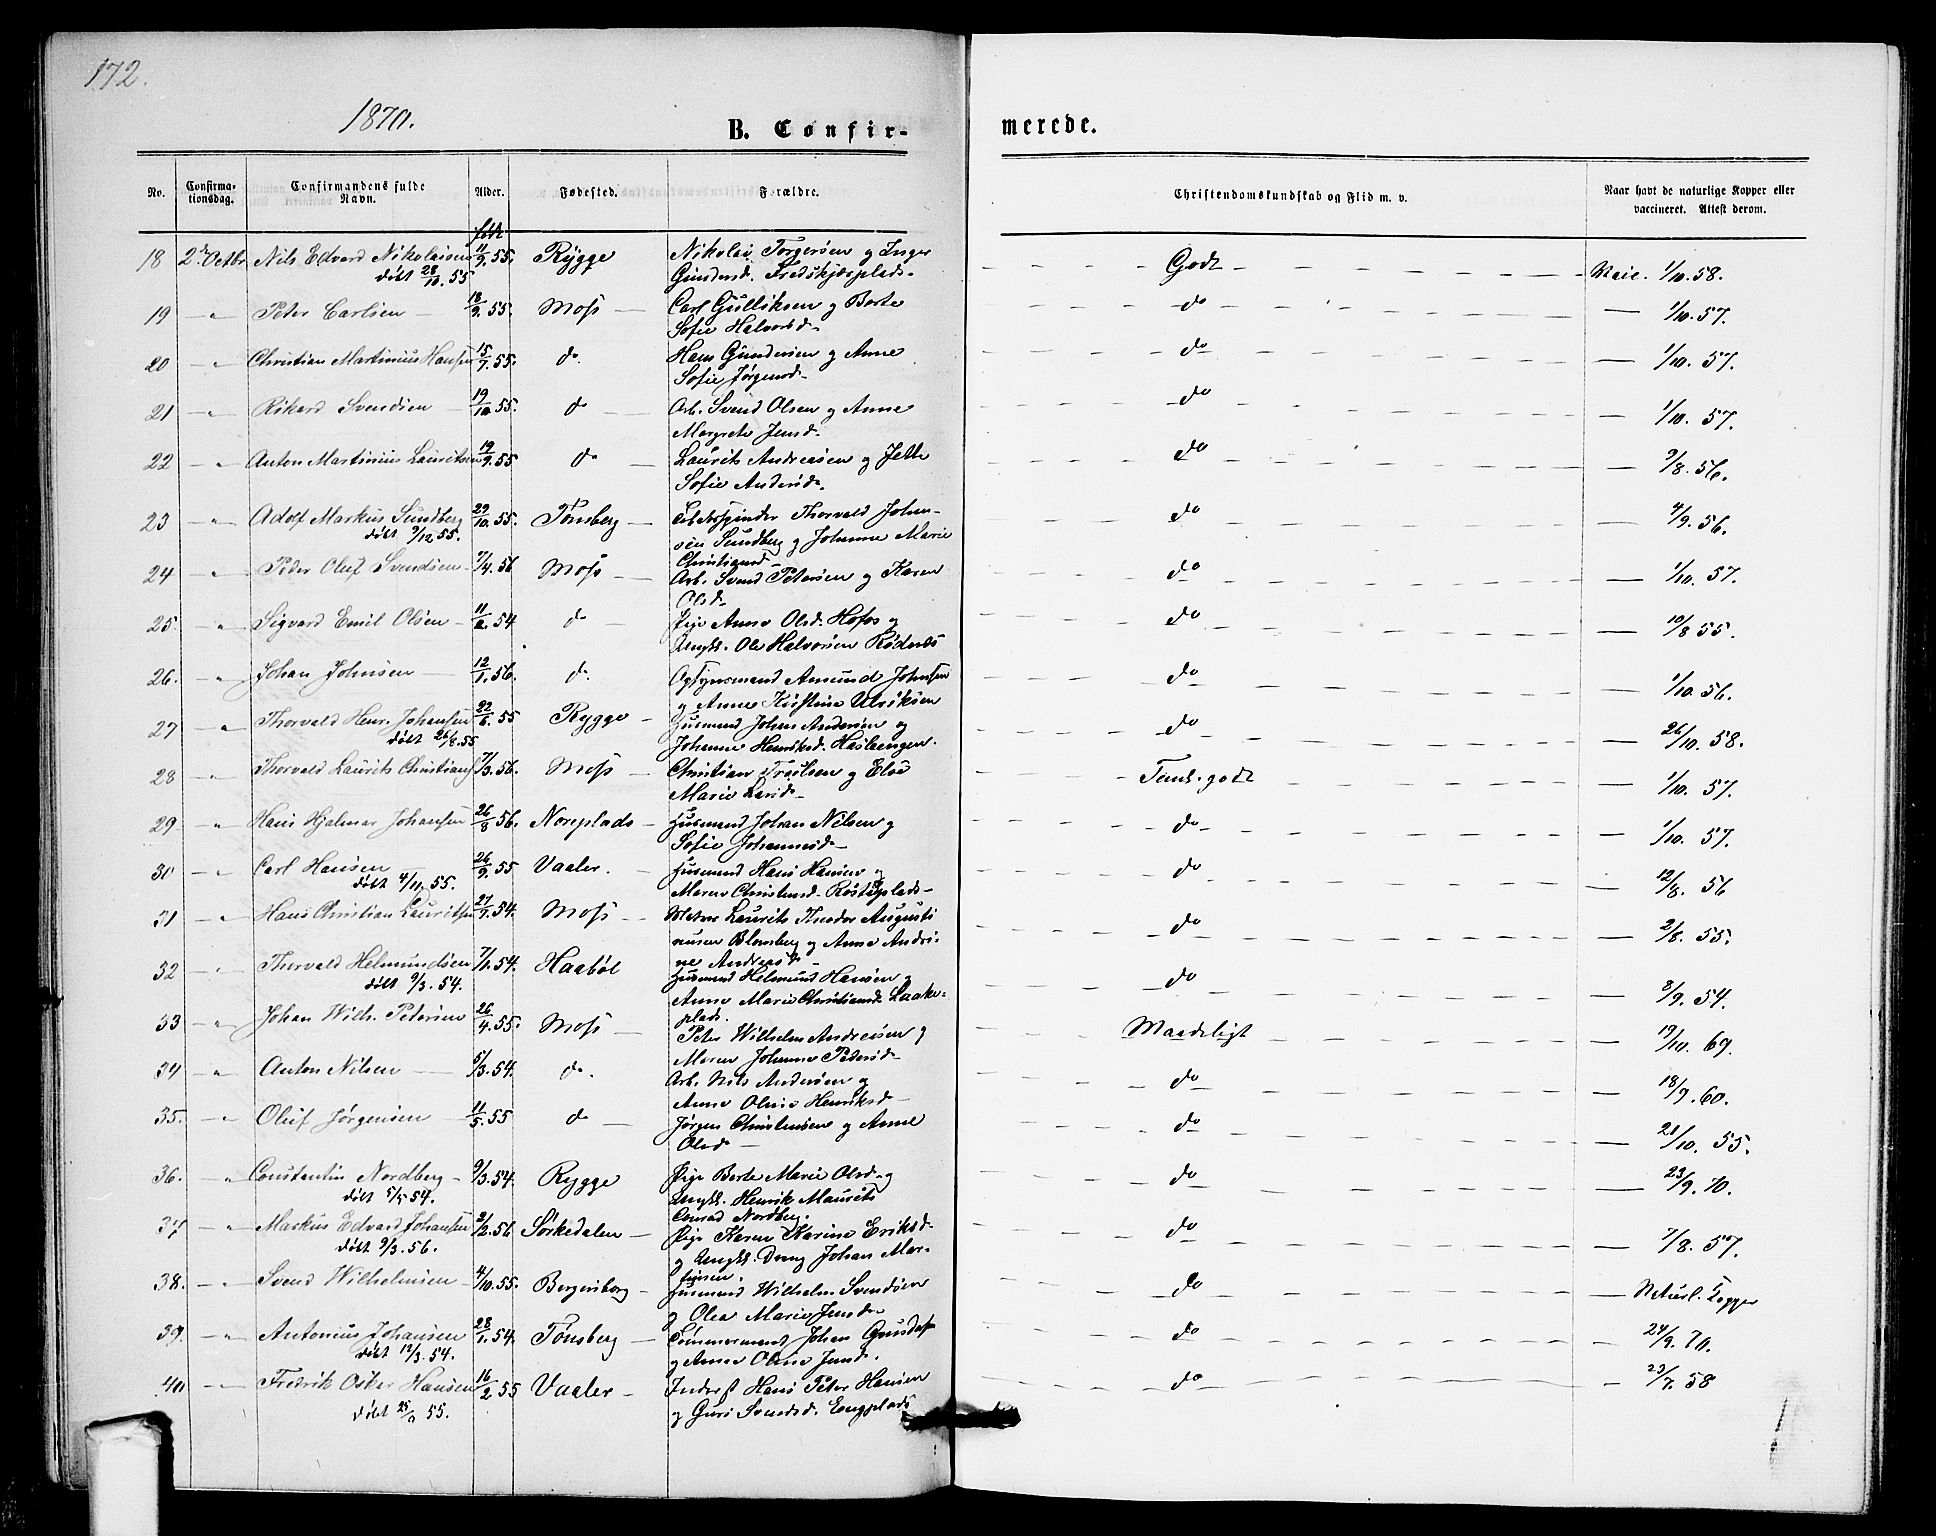 172.
1870.
B. Confir-
merede.
No.
Confirma-
tionsdag.
Confirmandens fulde
Navn.
Alder.
Fødested.
Forældre.
Christendomskundskab og Flid m. v.
Naar havt de naturlige Kopper eller
vaccineret. Attest derom.
født
18 2den Octbr Nils Edvard Nikolaisen 11/9.55. Rygge Nikolai Torgersen og Inger Godt 1/10.58.
døbt 28/10.55 Gundersd. Fredskjærplads.
19 - " - Peter Carlsen 18/9.55. Moss Carl Gulliksen og Berte do 1/10.57.
Sofie Halvorsd.
20 - " - Christian Martinius Hansen 15/7.55. do. Hans Gundersen og Anne do 1/10.57.
Sofie Jørgensd.
21 - " - Rikard Svendsen 19/10.55. do Arb. Svend Olsen og Anne do 1/10.57.
Margrete Jensd.
22 - " - Anton Martinius Lauritsen 19/9.55 do Laurits Andreasen og Jette do 9/8.56.
Sofie Andersd.
23 - " - Adolf Markus Sundberg 29/10.55. Tønsberg Thorvald Johan- do 4/9.56.
døbt 9/12.55. sen Sundberg og Johanne Marie
Christiansd.
24 - " - Peder Oluf Svendsen 7/4.56 Moss Arb. Svend Petersen og Karen do 1/10.57.
Olsd.
25. - " - Sigvard Emil Olsen 11/2.54 do Pige Anne Olsd. Hofos og do 10/8 55.
Ungk. Ole Halvorsen Rødenes
26. - " - Johan Johnsen 12/1.56. do. Opsynsmand Amund Johnsen do 1/10.56.
og Anne Kirstine Ulriksen
27 - " - Thorvald Henr. Johansen 22/6.55 Rygge Husmand Johan Andersen og do 26/10.58.
døbt 26/8.55 Johanne Henriksd. Haslæengen.
28 - " - Thorvald Laurits Christians 7/3.56. Moss Christian Troilsen og Else Temml. godt 1/10.57.
Marie Larsd.
29 - " - Hans Hjalmar Johansen 26/8 56. Noreplads Husmand Johan Nilsen og do 1/10.57.
Sofie Johannesd.
30 - " - Carl Hansen 26/9.55 Vaaler. Husmand Hans Hansen og do 12/8.56
døbt 4/11.55. Maren Christensd. Røstadplads
31 - " - Hans Christian Lauritsen 27/7.54. Moss Laurits Theodor Augusti do 2/8.55.
nusen Blomberg og Anne Andri-
ne Andreasd.
32 - " - Thorvald Helmundsen 7/1.54. Haabøl Husmand Helmund Hansen og do 8/9.54
døbt 9/3.54. Anne Marie Christiansd. Laake-
plads.
33 - " - Johan Wilh. Petersen 26/4.55. Moss Peter Wilhelm Andreasen og Maadeligt 19/10.69.
Maren Johanne Pedersd.
34 - " - Anton Nilsen 5/3.54. do. Arb. Nils Andersen og do 18/9.60.
Anne Oline Henriksd.
35. - " - Oluf Jørgensen 11/5.55 do Jørgen Christensen og Anne do 21/10.55.
Olsd
36. - " - Constantin Nordberg 9/3.54. Rygge Pige Berte Marie Olsd. og do 23/9.70.
døbt 5/5 54. Ungk. Henrik Maurits
Conrad Nordberg.
37 - " - Markus Edvard Johansen 2/2.56 Sørkedalen Pige Karen Karine Eriksd. do 7/8.57.
døbt 9/3.56. og Ungk. Dreng Johan Mar-
tinsen.
38. - " - Svend Wilhelmsen 4/10.55. Bergersborg Husmand Wilhelm Svendsen do Naturl. Kopper
og Olea Marie Jensd.
39. - " - Antonius Johansen 28/1.54. Tønsberg Tømmermand Johan do 24/9.70.
døbt 12/3.54. og Anne Oline Jensd.
40 - " - Fredrik Oskar Hansen 16/2.55 Vaaler Inderst Hans Peter Hansen do 23/7.58
døbt 55. og Guri Svendsd. Engplads